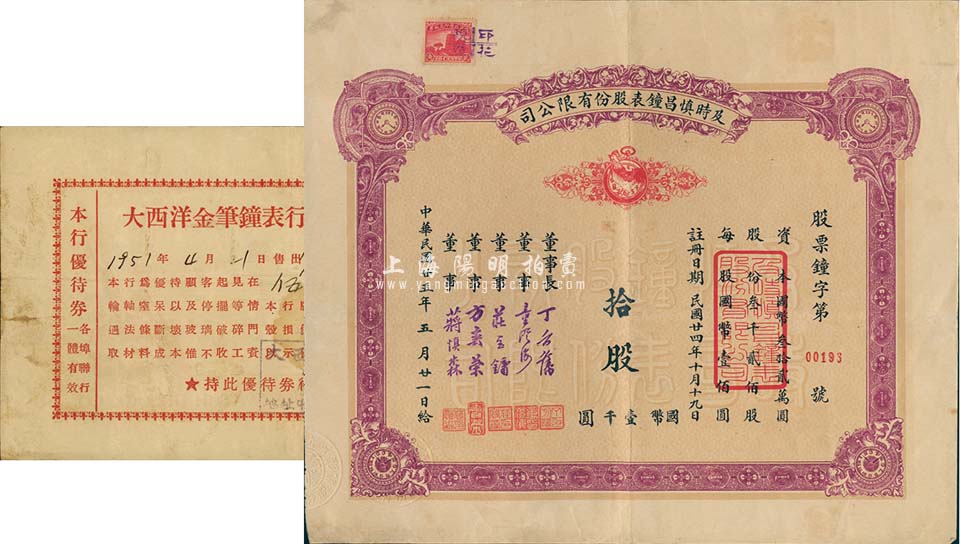 印花
及時慎昌鐘表股份有限公司
股票鐘字第 00193 號
資本國幣叁拾貳萬圓
股份叁千貳佰股
每股國幣壹佰圓
註冊日期 民國廿四年十月十九日
拾股
國幣壹千圓
董事長
董事
董事
董事 方奕榮
董事 蔣慎森
中華民國廿五年五月廿一日給
大西洋金筆鐘表行
1951年4月21日售出
本行為優待顧客起見在本行
輪軸室呆以及停擺等情
遇法條斷壞玻璃破碎門
取材料成本惟不收工資以示
★持此優待券
本行優待券
各埠聯行
一體有效
上海陽明拍賣
www.yangmingauction.com